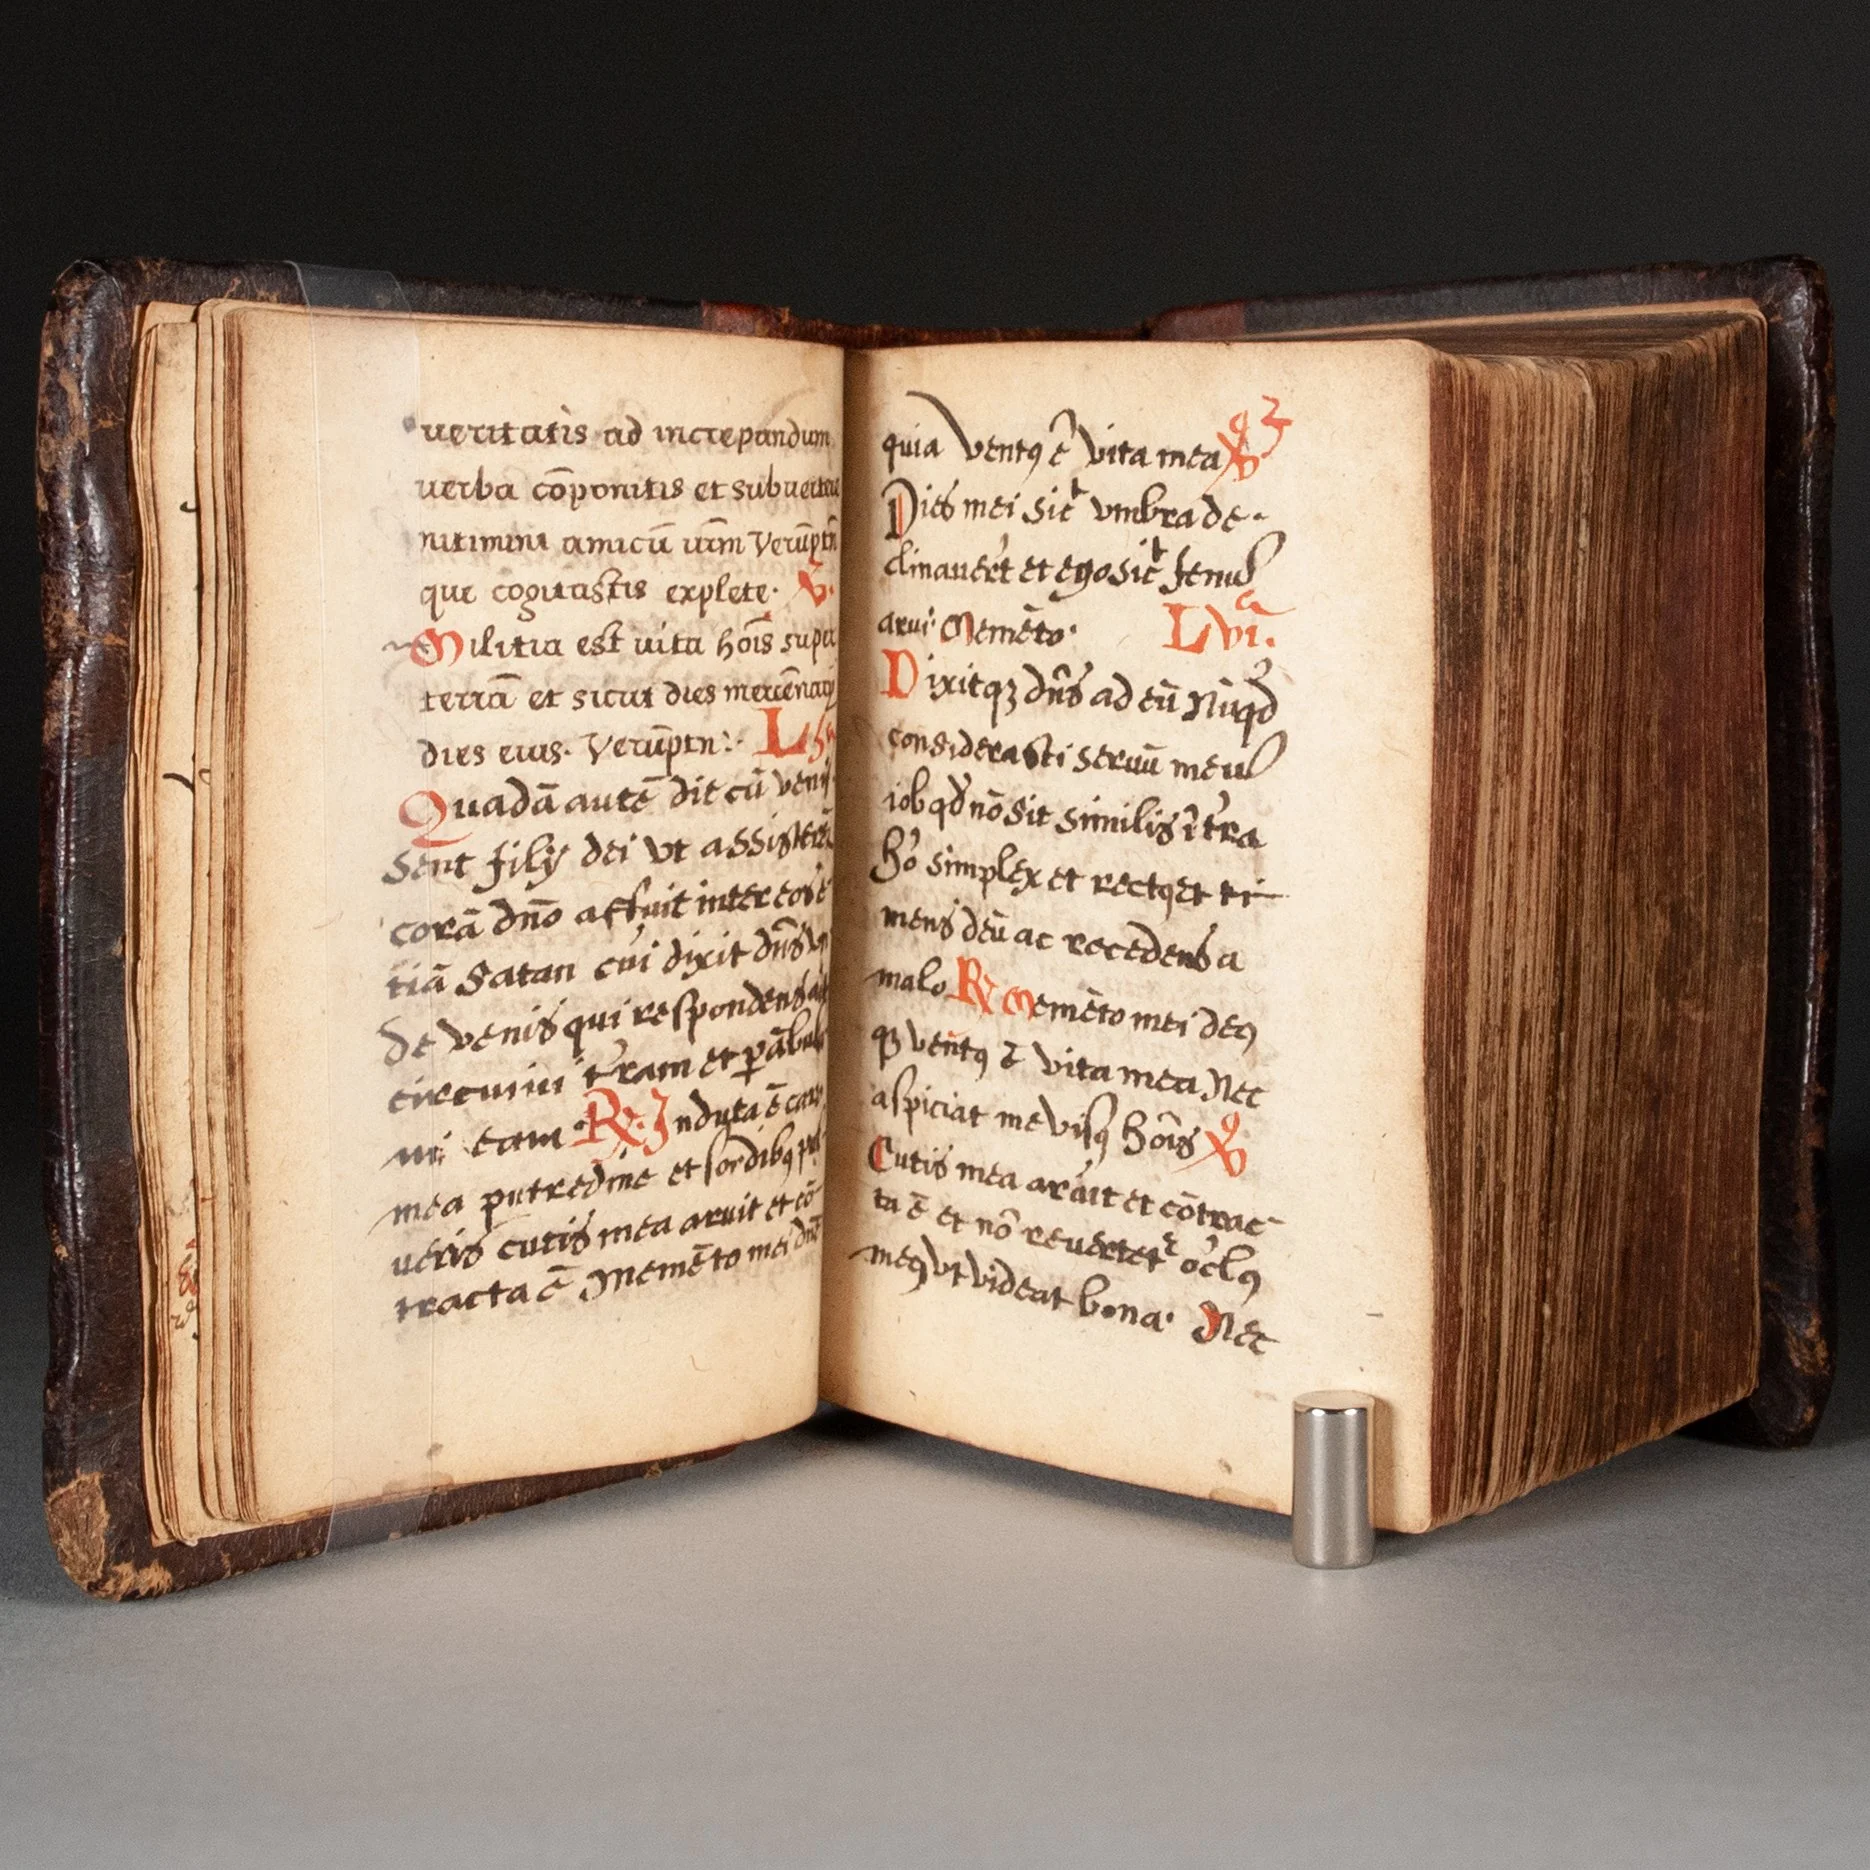 veritatis ad increpandum
uerba cōponitis et subuertere
nitimini amicū urm̄ Verūptn̄
que cogitastis explete. V.
Militia est uita hoīs super
terrā et sicut dies mercēnarij
dies eius. Verūptn̄:
Quadā autē die cū venis
sent filij dei vt assisterēt
corā dn̄o affuit inter eos e
tiā Satan cui dixit dn̄s vn
de venis qui respondens ait
circuiui tr̄am et p̄ābula
ui eam R. Induta ē caro
mea putredine et sordibꝯ pul
ueris cutis mea aruit et cō
tracta ē Memēto mei dn̄e
quia ventꝯ ē vita mea V 93
Dies mei sic̄ vmbra de-
clinauer̄t et ego sic̄ fenuȝ
arui. Memēto. L vi.a
Dixitqȝ dn̄s ad eū Nūqd
considerasti seruū meuȝ
iob qd̓ nō sit similis ī tr̄a
ho̓ simplex et rectꝯ et ti-
mens deū ac recedens a
malo R Memēto mei deꝯ
qȝ ventꝯ ē vita mea Nec
aspiciat me visꝯ hoīs V
Cutis mea aruit et cōtrac-
ta ē et nō reuertet̄ oc̓lꝯ
meꝯ vt videat bona. Nec